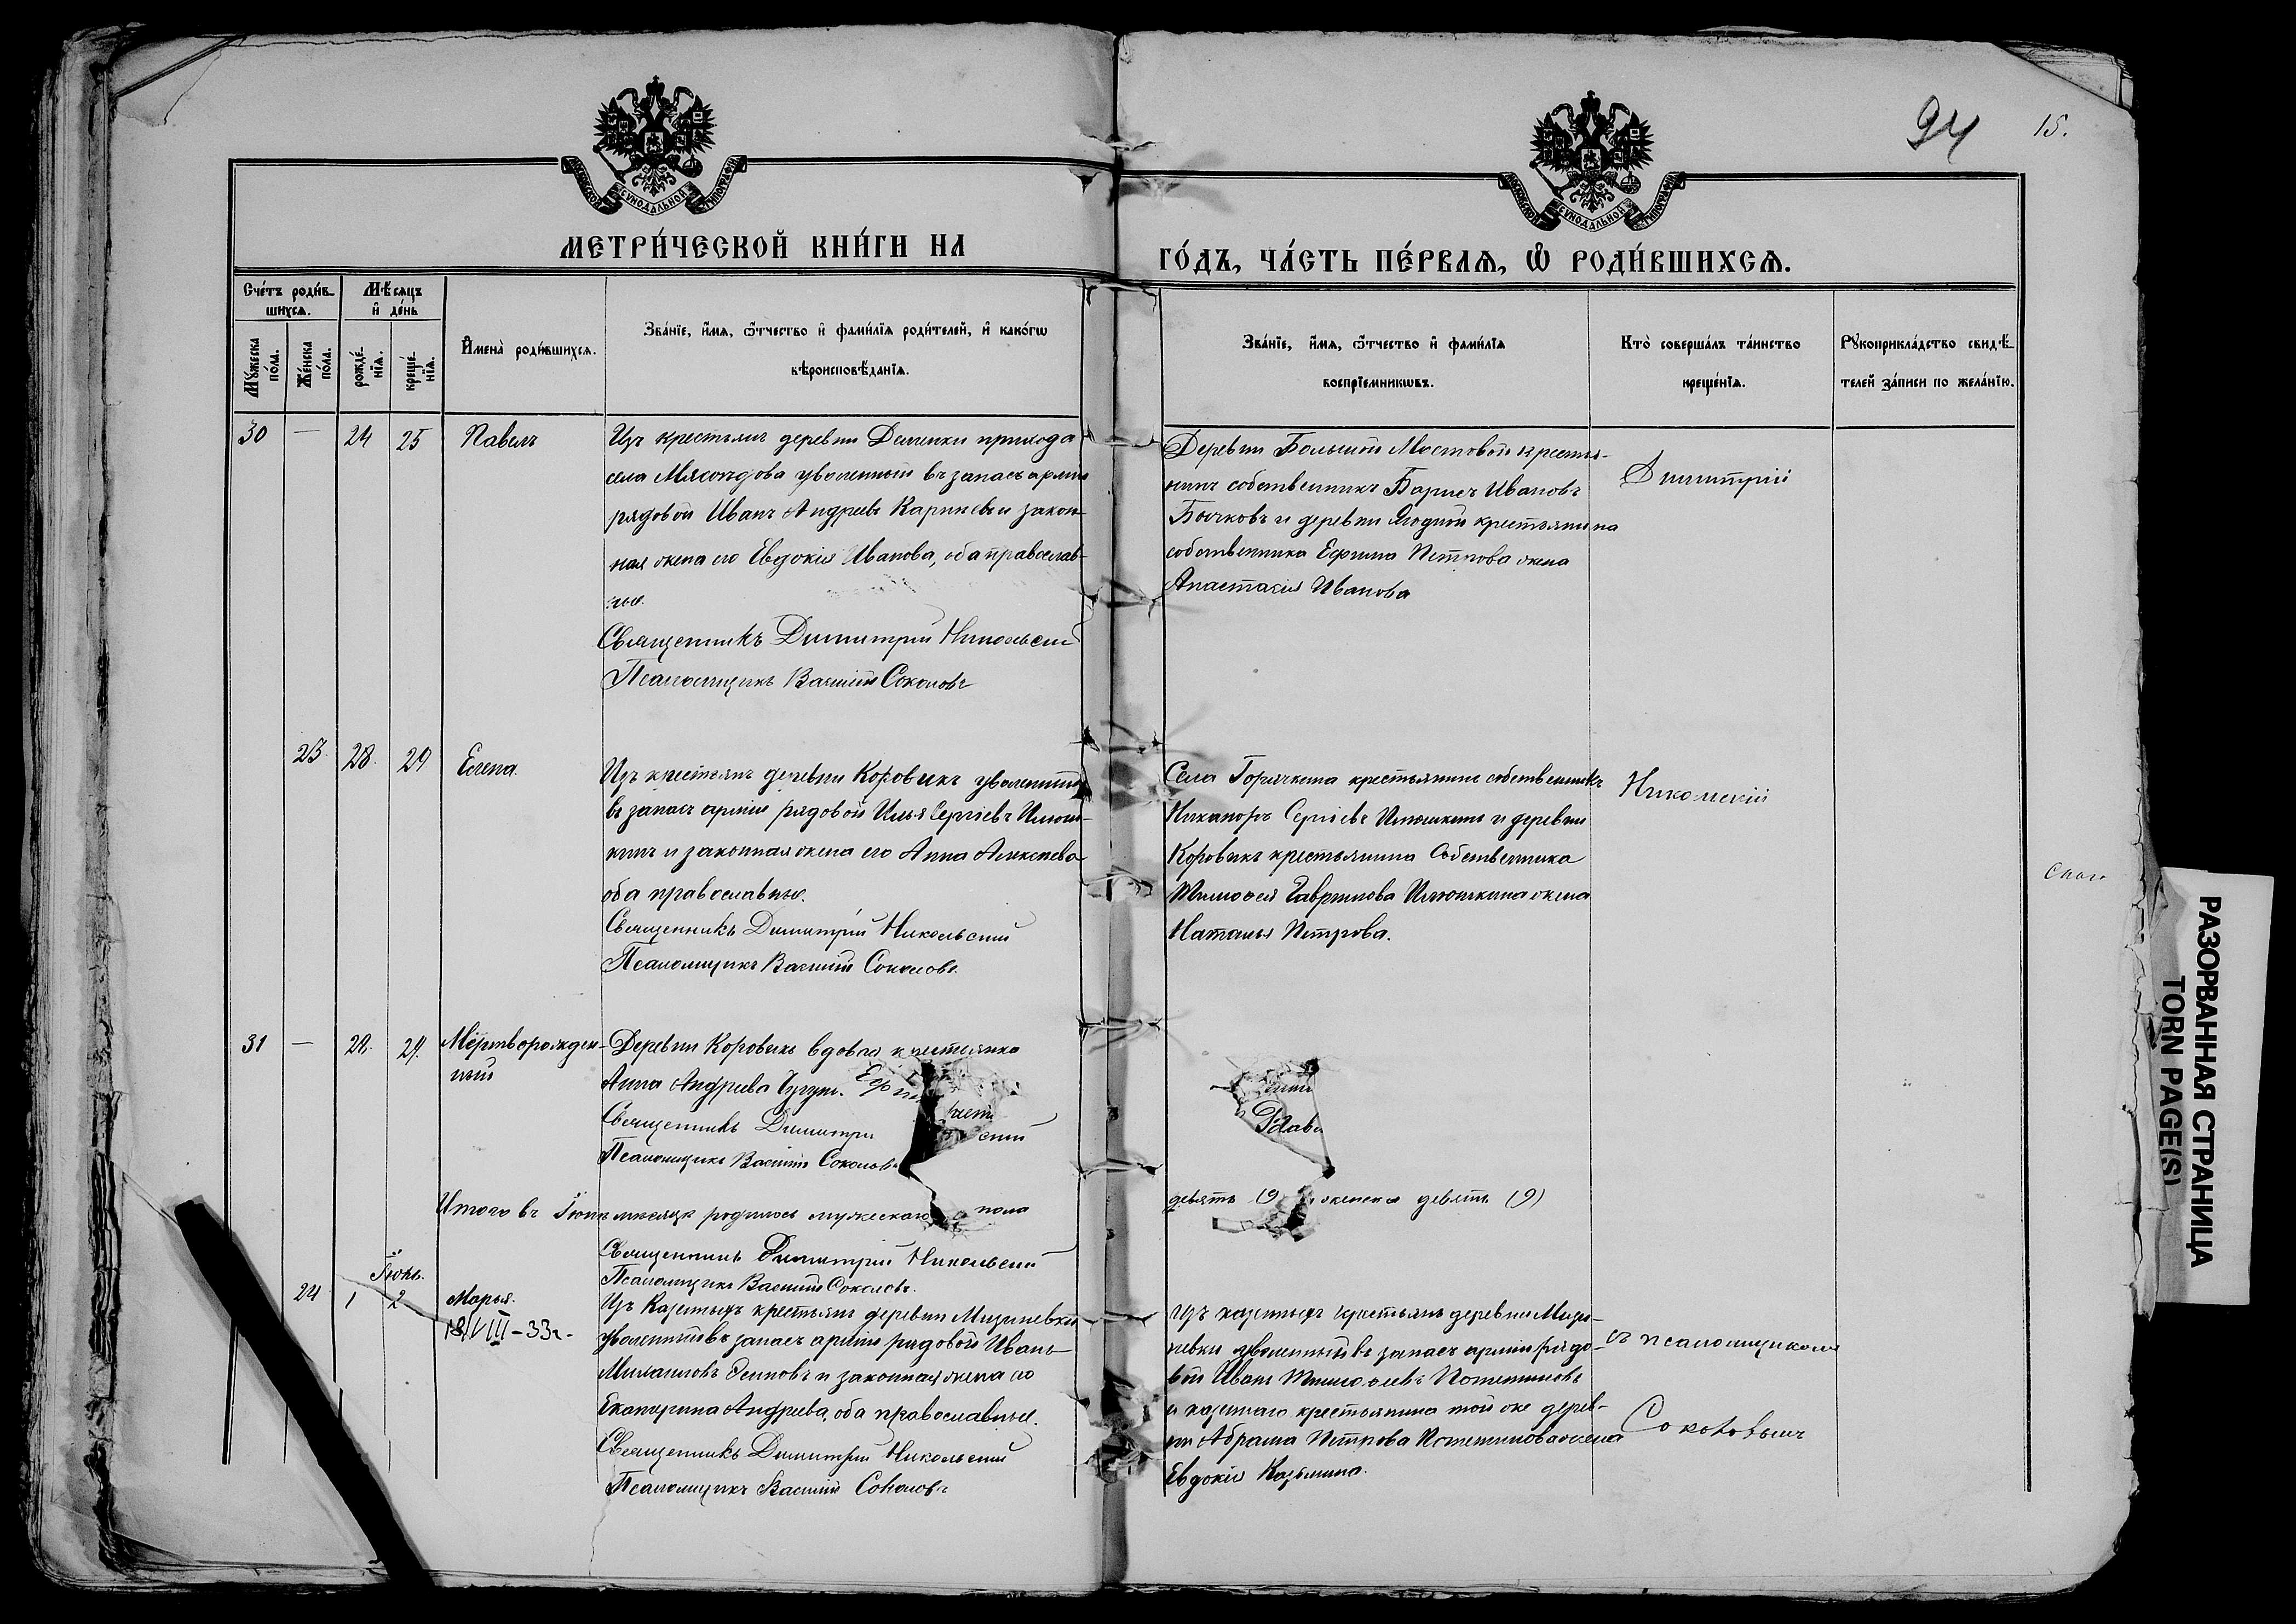 94
15.
МОСКОВСКОЙ СУНОДАЛЬНОЙ ТИПОГРАФІИ
МОСКОВСКОЙ СУНОДАЛЬНОЙ ТИПОГРАФІИ
МЕТРИ́ЧЕСКОЙ КНИ́ГИ НА
ГО́ДЪ, ЧА́СТЬ ПЕ́РВАѦ, Ѽ РОДИ́ВШИХСѦ.
Сче́тъ роди́в-
шихсѧ.
Мꙋ́жеска по́ла.
Же́нска по́ла.
Мѣ́сѧцъ
и҆ де́нь
рожде́-
нїѧ.
креще́-
нїѧ.
И҆мена̀ роди́вшихсѧ.
Зва́нїе, и҆́мѧ, ѻ҆́тчество и҆ фами́лїѧ роди́телей, и҆ како́гѡ
вѣроисповѣ́данїѧ.
Зва́нїе, и҆́мѧ, ѻ҆́тчество и҆ фами́лїѧ
воспрїе́мникѡвъ.
Кто̀ соверша́лъ та́инство
креще́нїѧ.
Рꙋкоприкла́дство свидѣ́-
телей за́писи по жела́нїю.
30 — 24 25 Павелъ
Изъ крестьянъ деревни прихода
села уволенный въ запасъ арміи
рядовой Иванъ Андреевъ и закон-
ная жена его Евдокія Иванова, оба православ-
ные.
Священникъ Димитрій Никольскій
Псаломщикъ Василій Соколовъ
Деревни Большой Мостовой крестья-
нинъ собственникъ Борисъ Ивановъ
Бычковъ и деревни Ягодной крестьянина
собственника Ефима Петрова жена
Анастасія Иванова
Димитрій
23. 28. 29 Елена.
Изъ крестьянъ деревни Коровикъ уволенный
въ запасъ арміи рядовой Илья Сергіевъ Илюш-
кинъ и законная жена его Анна Алексеева
оба православные.
Священникъ Димитрій Никольскій
Псаломщикъ Василій Соколовъ.
Села Горячкина крестьянинъ собственникъ
Никаноръ Сергіевъ Илюшкинъ и деревни
Коровикъ крестьянина Собственника
Тимофея Гаврилова Илюшкина жена
Наталья Петрова.
Никольскій
31 — 28. 29. Мёртворожден-
ный
Деревни Коровикъ вдовая крестьянка
Анна Андреева
Священникъ Димитрі скій
Псаломщикъ Василій Соколовъ
Итого въ Іюнѣ месяцѣ родилось мужескаго пола
девять (9 женска девять (9)
Священникъ Димитрій Никольскій
Псаломщикъ Василій Соколовъ.
Іюль.
24 1 2 Марья.
18/VIII-33г.
Изъ Казенныхъ крестьянъ деревни Мизиневки
уволенный въ запасъ арміи рядовой Иванъ
Михаиловъ Осиповъ и законная жена его
Екатерина Андреева, оба православные.
Священникъ Димитрій Никольскій
Псаломщикъ Василій Соколовъ
Изъ казенныхъ крестьянъ деревни Мизи-
невки уволенный въ запасъ арміи рядо-
вой Иванъ Тимофеевъ Потетиновъ
и казеннаго крестьянина той же дерев-
ни Абрама Петрова Потетинова жена
Евдокія Казьмина.
съ псаломщикомъ
Соколовымъ
РАЗОРВАННАЯ СТРАНИЦА
TORN PAGE(S)